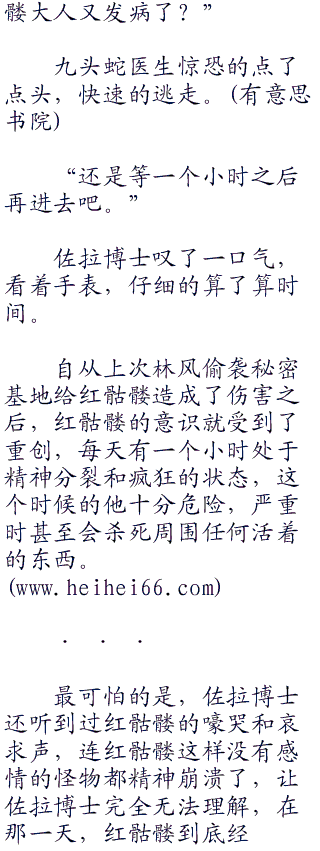 髅大人又发病了？”
九头蛇医生惊恐的点了
点头，快速的逃走。(有意思
书院)
“还是等一个小时之后
再进去吧。”
佐拉博士叹了一口气，
看着手表，仔细的算了算时
间。
自从上次林风偷袭秘密
基地给红骷髅造成了伤害之
后，红骷髅的意识就受到了
重创，每天有一个小时处于
精神分裂和疯狂的状态，这
个时候的他十分危险，严重
时甚至会杀死周围任何活着
的东西。
(www.heihei66.com)
. . .
最可怕的是，佐拉博士
还听到过红骷髅的嚎哭和哀
求声，连红骷髅这样没有感
情的怪物都精神崩溃了，让
佐拉博士完全无法理解，在
那一天，红骷髅到底经